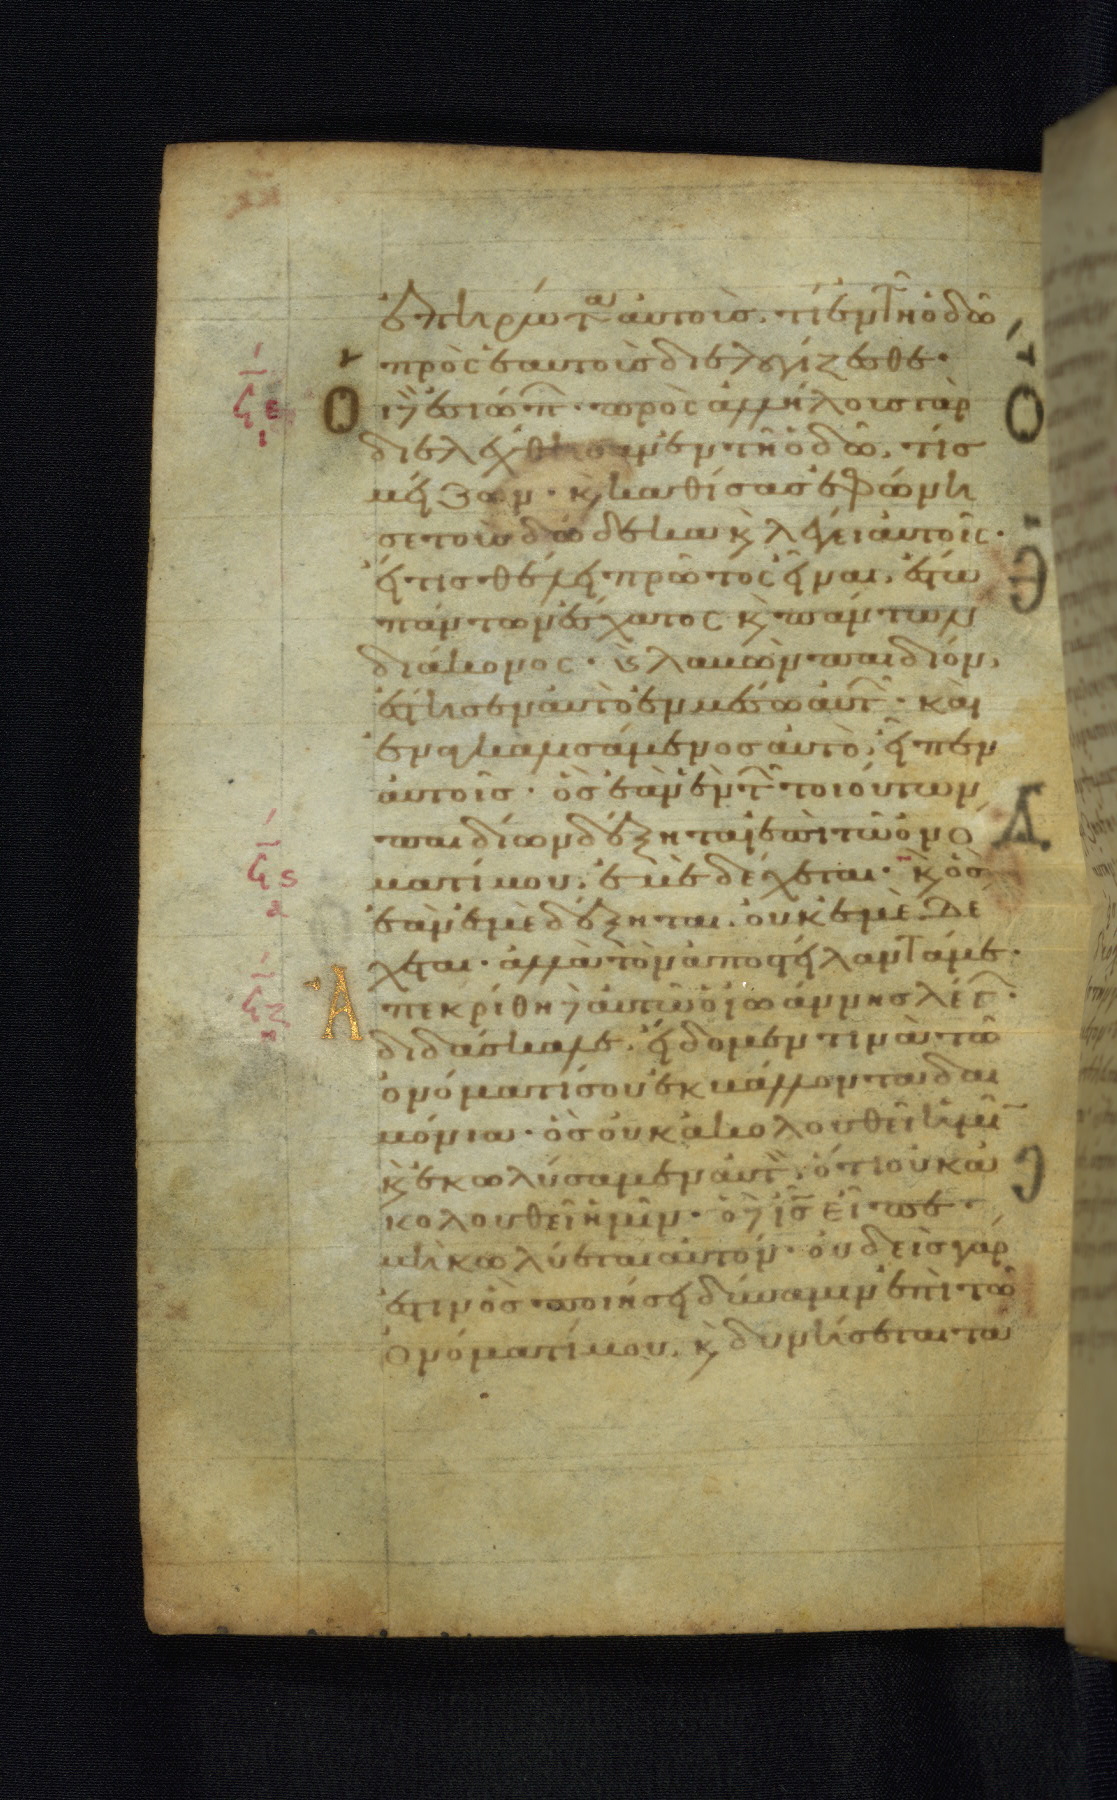 ἐπηρώτα αὐτοὺς, τί ἐν τῇ ὁδῷ
πρὸς ἑαυτοὺς διελογίζεσθε·
Ο ἱ δὲ ἐσιώπων· πρὸς ἀλλήλους γὰρ
διελέχθησαν ἐν τῇ ὁδῷ, τίς
μείζων· κ καθίσας ἐφώνη
σε τοὺς δώδεκα κ λέγει αὐτοῖς·
εἴ τις θέλει πρῶτος εἶναι, ἔσται
πάντων ἔσχατος κ πάντων
διάκονος· κ λαβὼν παιδίον,
ἔστησεν αὐτὸ ἐν μέσω αὐτῶν· καὶ
ἐναγκαλισάμενος αὐτὸ, εἶπεν
αὐτοῖς· ὃς ἐὰν ἓν τῶν τοιούτων
παιδίων δέξηται ἐπὶ τῶ ὀνό
ματί μου, ἐμὲ δέχεται· κ ὃς
ἐὰν ἐμὲ δέξηται, οὐκ ἐμὲ δέ
χεται· ἀλλὰ τὸν ἀποστείλαντά με·
Α πεκρίθη δὲ αὐτῶ ὁ ἰωάννης λέγων·
διδάσκαλε, εἴδομέν τινα τῶ
ὀνόματί σου ἐκβάλλοντα δαι
μόνια· ὃς οὐκ ἀκολουθεῖ ἡμῖν
κ ἐκωλύσαμεν αὐτὸν, ὅτι οὐκ ἀ
κολουθεῖ ἡμῖν· ὁ δὲ ις εἶπε·
μὴ κωλύεται αὐτόν· οὐδεὶς γάρ
ἐστιν ὃς ποιήσει δύναμιν ἐπὶ τῶ
ὀνόματί μου, κ δυνήσεται τα